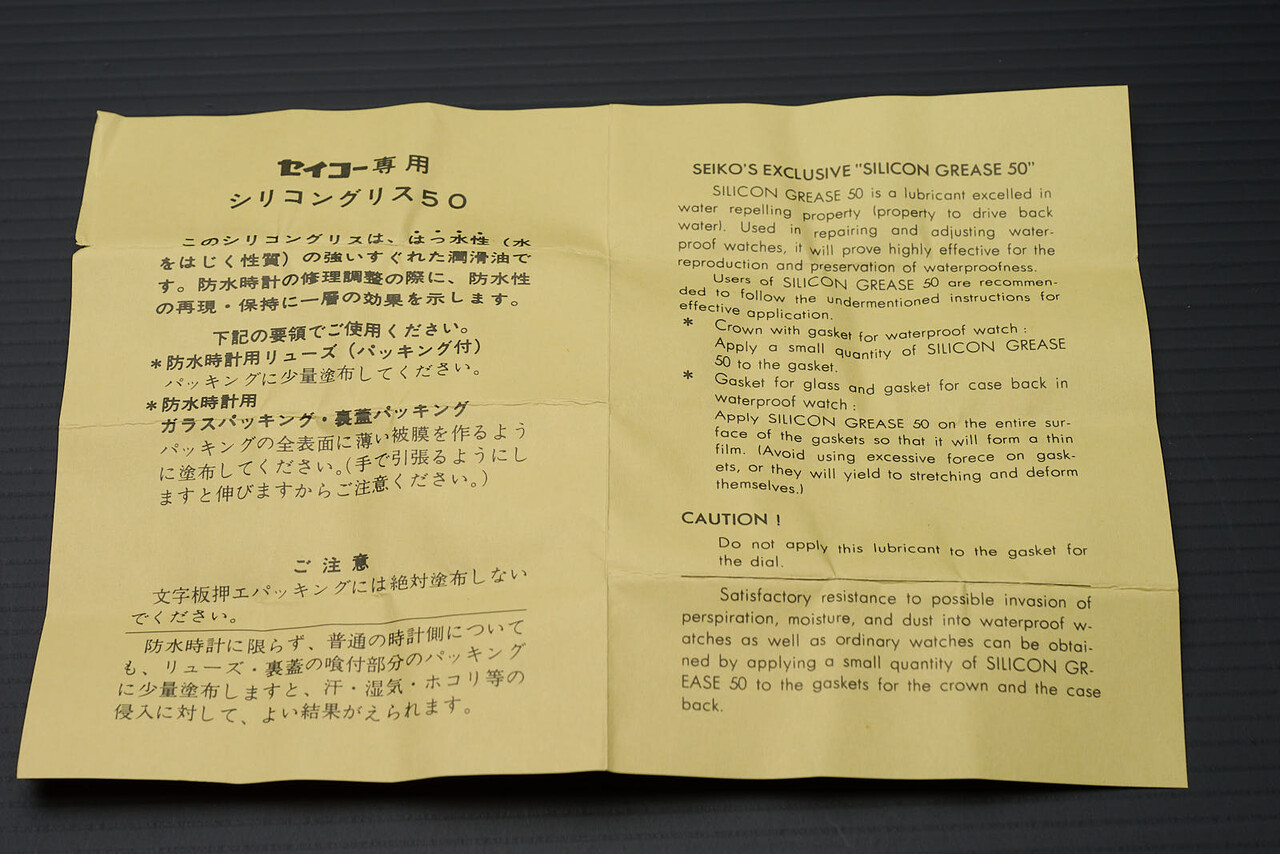 セイコー専用
シリコングリス50
このシリコングリスは、はっ水性(水
をはじく性質)の強いすぐれた潤滑油で
す。防水時計の修理調整の際に、防水性
の再現・保持に一層の効果を示します。
下記の要領でご使用ください。
*防水時計用リューズ(パッキング付)
パッキングに少量塗布してください。
*防水時計用
ガラスパッキング・裏蓋パッキング
パッキングの全表面に薄い被膜を作るよう
に塗布してください。(手で引張るようにし
ますと伸びますからご注意ください。)
ご注意
文字板押エパッキングには絶対塗布しない
でください。
防水時計に限らず、普通の時計側について
も、リューズ・裏蓋の喰付部分のパッキング
に少量塗布しますと、汗・湿気・ホコリ等の
侵入に対して、よい結果がえられます。
SEIKO'S EXCLUSIVE "SILICON GREASE 50"
SILICON GREASE 50 is a lubricant excelled in
water repelling property (property to drive back
water). Used in repairing and adjusting water-
proof watches, it will prove highly effective for the
reproduction and preservation of waterproofness.
Users of SILICON GREASE 50 are recommen-
ded to follow the undermentioned instructions for
effective application.
* Crown with gasket for waterproof watch :
Apply a small quantity of SILICON GREASE
50 to the gasket.
* Gasket for glass and gasket for case back in
waterproof watch :
Apply SILICON GREASE 50 on the entire sur-
face of the gaskets so that it will form a thin
film. (Avoid using excessive forece on gask-
ets, or they will yield to stretching and deform
themselves.)
CAUTION !
Do not apply this lubricant to the gasket for
the dial.
Satisfactory resistance to possible invasion of
perspiration, moisture, and dust into waterproof w-
atches as well as ordinary watches can be obtai-
ned by applying a small quantity of SILICON GR-
EASE 50 to the gaskets for the crown and the case
back.